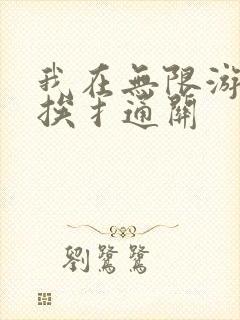 我在無限游
挨扌通關
劉鷺鷺